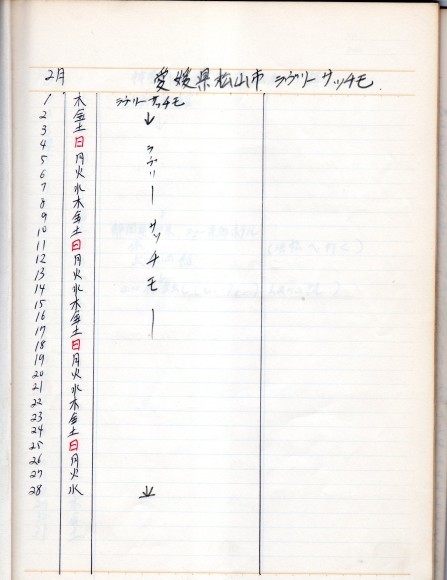 2月 愛媛県松山市 ラヴリー サッチモ
1 木 ラヴリー サッチモ
2 金 ↓
3 土
4 日
5 月
6 火
7 水
8 木
9 金
10 土
11 日
12 月
13 火
14 水
15 木
16 金
17 土
18 日
19 月
20 火
21 水
22 木
23 金
24 土
25 日
26 月
27 火
28 水 ↓
ラヴリー サッチモー